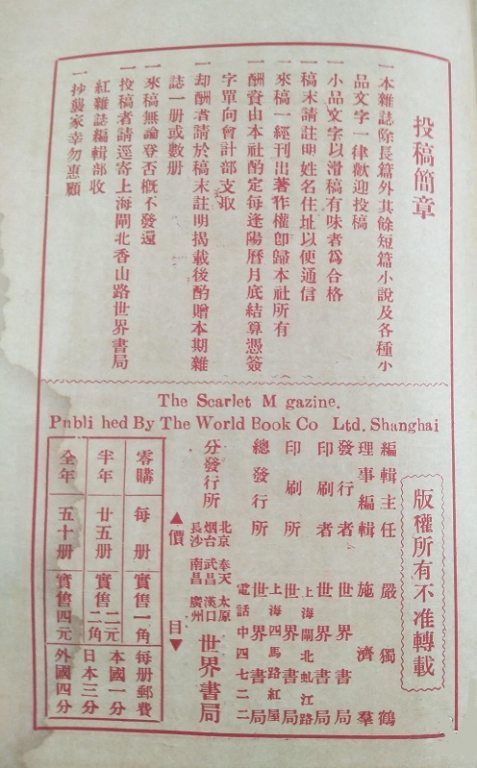 投稿簡章
一本雜誌除長篇外其餘短篇小說及各種小
品文字一律歡迎投稿
一小品文字以滑稿有味者爲合格
一稿末請註明姓名住址以便通信
一來稿一經刊出著作權卽歸本社所有
一酬資由本社酌定每逢陽曆月底結算憑簽
字單向會計部支取
一却酬者請於稿末註明揭載後酌贈本期雜
誌一册或數册
一來稿無論登否槪不發還
一投稿者請逕寄上海閘北香山路世界書局
紅雜誌編輯部收
一抄襲家幸勿惠顧
The Scarlet M gazine.
Publi hed By The World Book Co Ltd. Shanghai
版權所有不准轉載
編輯主任 嚴獨鶴
理事編輯 施濟羣
發行者 世界書局
印刷者 世界書局
上海閘北虬江路
印刷所 世界書局
上海四馬路紅屋
總發行所 世界書局
電話中四七二二
分發行所
北京 奉天 太原
烟台 武昌 漢口
長沙 南昌 廣州
世界書局
▲價目▼
零購 每册 實售一角 每册郵費
半年 廿五册 實售二元二角 本國一分 日本三分
全年 五十册 實售四元 外國四分